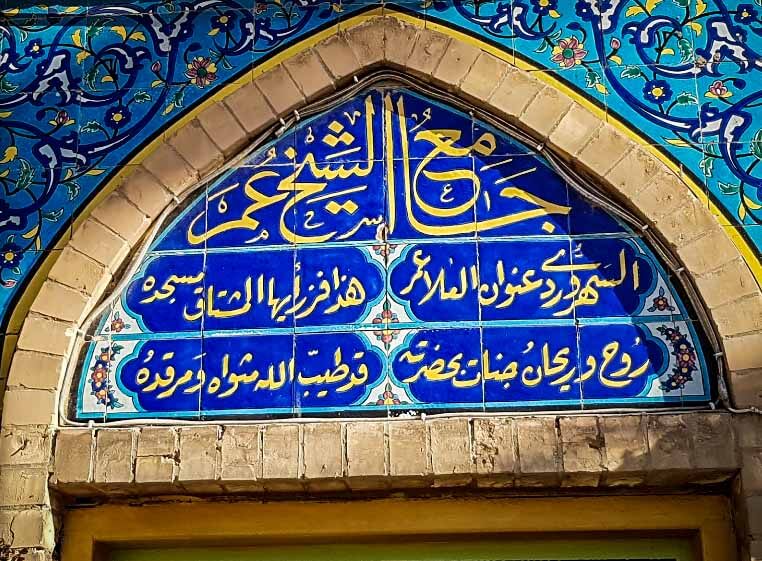 جامع الشيخ عمر
السهروردي عنوان العلا عمر هذا فزر أيها المشتاق مسجده
روح وريحان جنات بحضرته قد طيب الله مثواه ومرقده